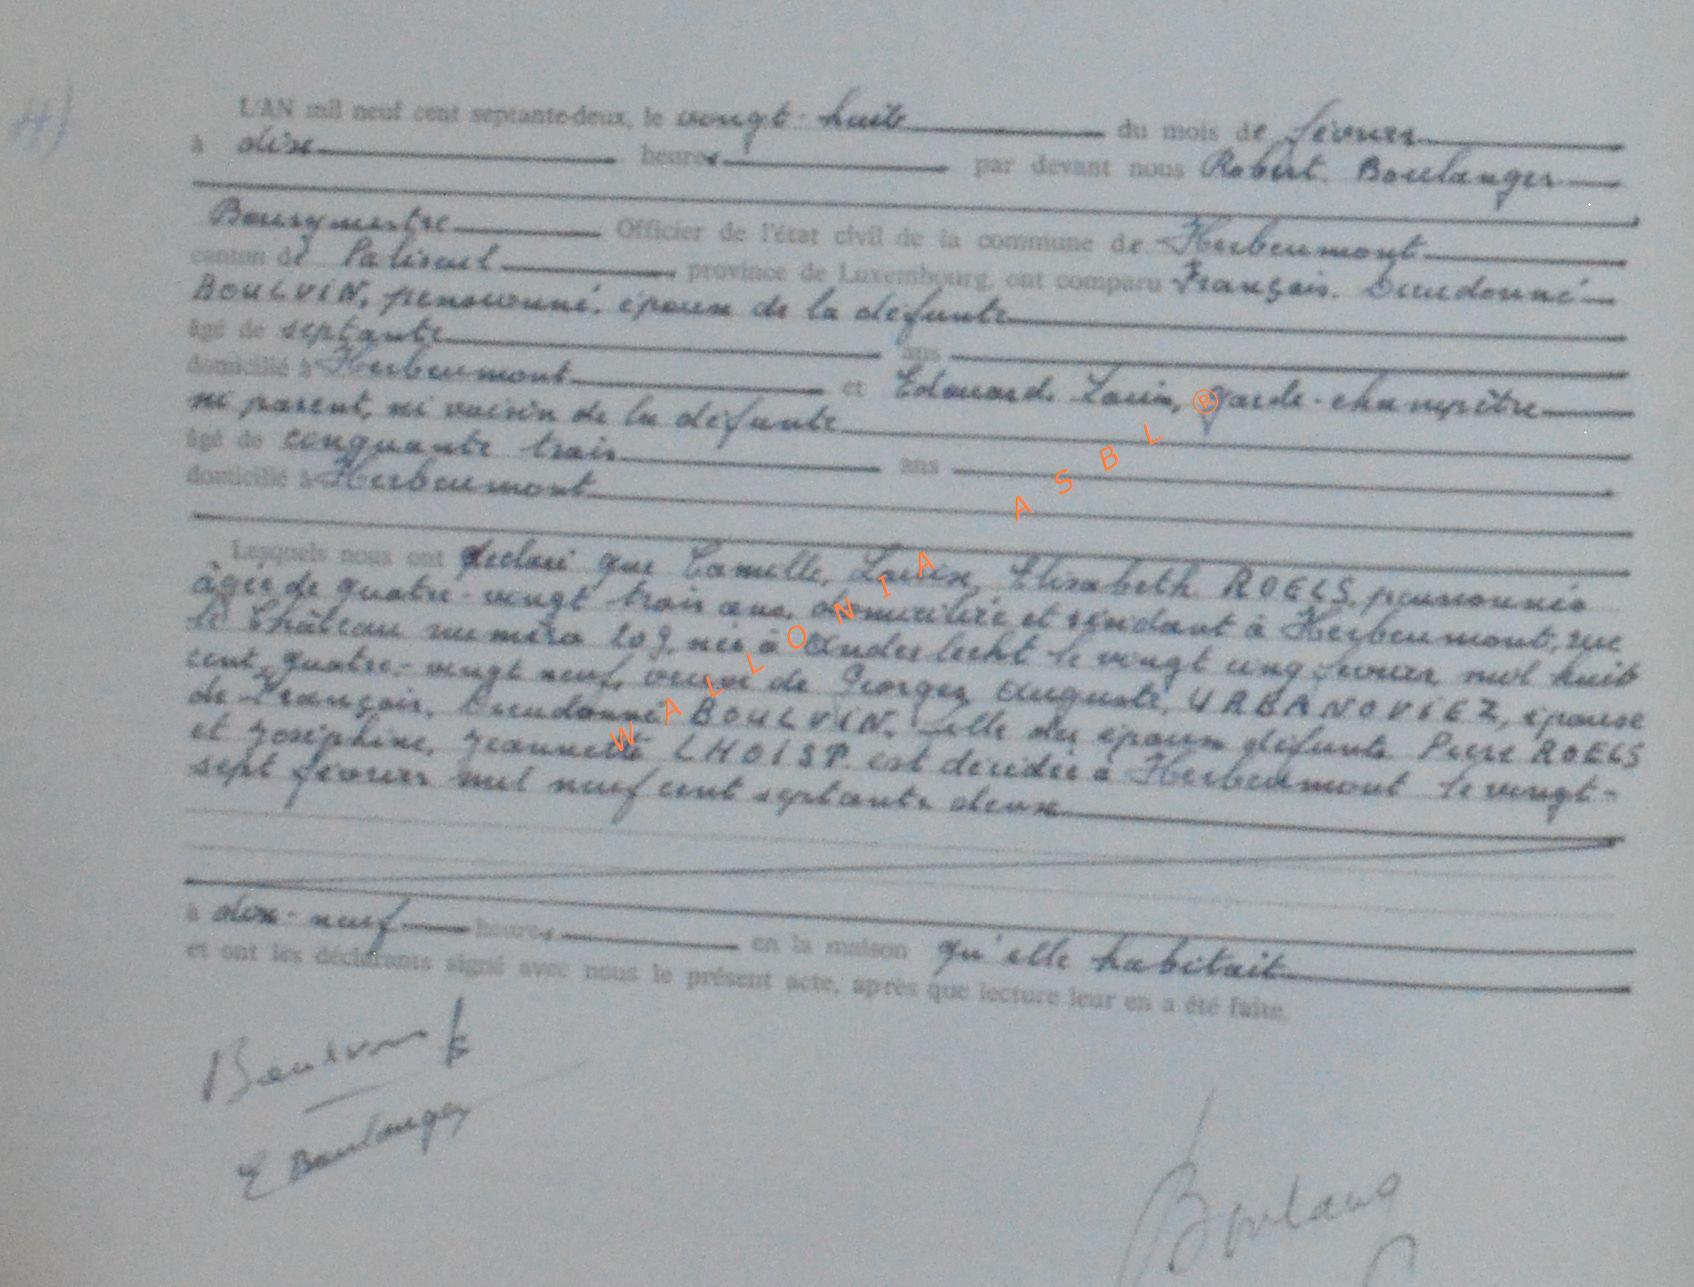 4)
L'AN mil neuf cent septante-deux, le vingt-huit du mois de février
à dix heures par devant nous Robert Boulanger
Bourgmestre Officier de l'état civil de la commune de Herbeumont
canton de Paliseul, province de Luxembourg, ont comparu François, Dieudonné
BOULVIN, pensionné, époux de la défunte
âgé de septante ans
domicilié à Herbeumont et Edouard, Louis, garde-champêtre
ni parent, ni voisin de la défunte
âgé de cinquante trois ans
domicilié à Herbeumont
Lesquels nous ont déclaré que Camille, Louise, Elisabeth ROELS, pensionnée
âgée de quatre-vingt trois ans, domiciliée et résidant à Herbeumont, rue
le Château numéro 109, née à Anderlecht le vingt cinq février mil huit
cent quatre-vingt neuf, veuve de Georges, Auguste, URBANOVIEZ, épouse
de François, Dieudonné BOULVIN, fille des époux défunts Pierre ROELS
et Joséphine, Jeannette LHOIST est décédée à Herbeumont le vingt-
sept février mil neuf cent septante deux
à dix-neuf heures en la maison qu'elle habitait
et ont les déclarants signé avec nous le présent acte, après que lecture leur en a été faite.
Boulvin F
E Boulanger
Boulang
WALLONIA ASBL ®